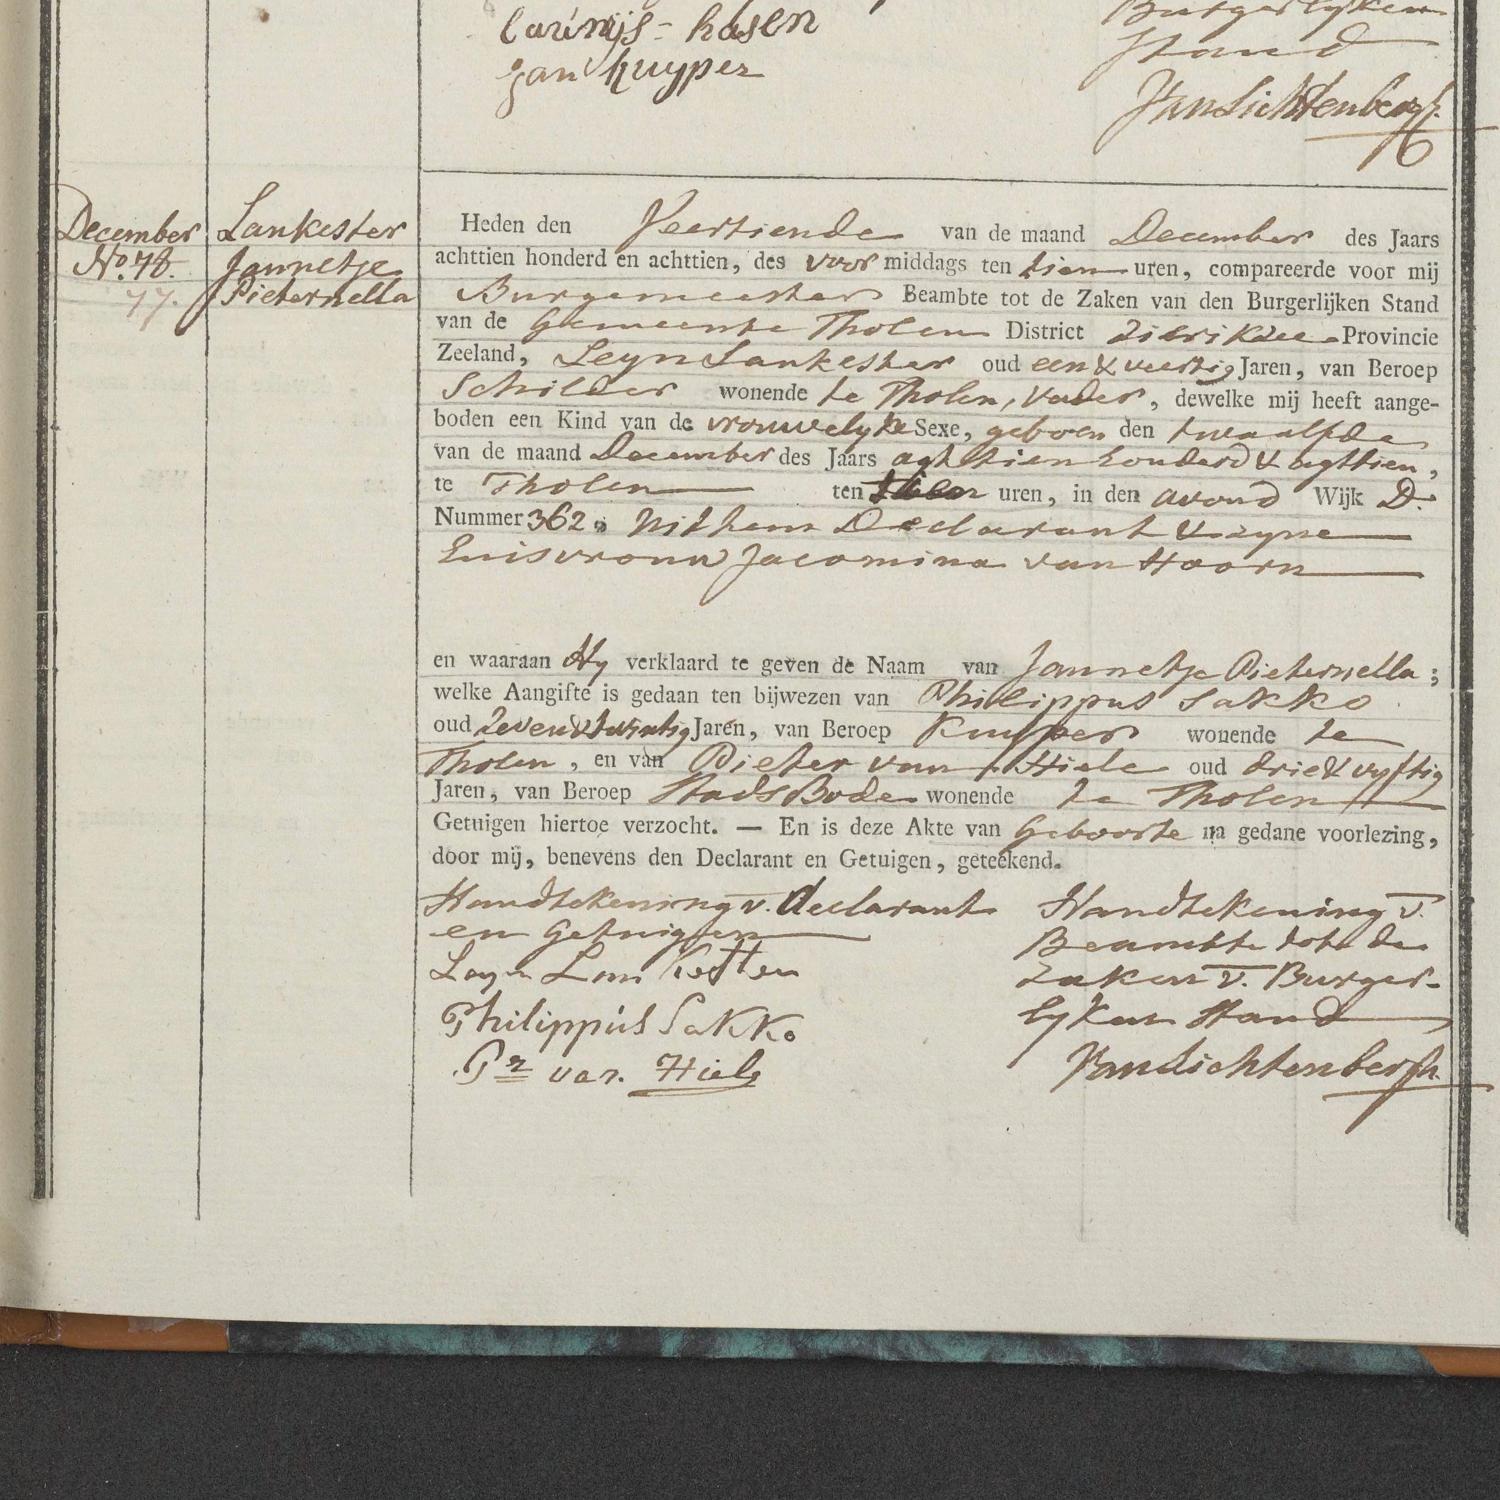 Laúrnijs - hasen
jan kuyper
Burgerlyken
Stand
VanLichtenbergh.
December
No. 78.
77.
Lankester
Jannetje
Pieternella
Heden den Veertiende van de maand December des Jaars
achttien honderd en achttien, des voor middags ten tien uren, compareerde voor mij
Burgemeester Beambte tot de Zaken van den Burgerlijken Stand
van de Gemeente Tholen District Zierikzee Provincie
Zeeland, Leyn Lankester oud een & veertig Jaren, van Beroep
Schilder wonende te Tholen, Vader, dewelke mij heeft aange-
boden een Kind van de vrouwelyke Sexe, geboren den twaalfde
van de maand December des Jaars agttien honderd & agttien,
te Tholen ten uren, in den avond Wijk D.
Nummer 362. uit hem Declarant & zyne
Huisvrouw Jacomina van Hoorn
en waaraan Hy verklaard te geven de Naam van Jannetje Pieternella;
welke Aangifte is gedaan ten bijwezen van Philippus Sakko
oud zeven & twintig Jaren, van Beroep Kuyper wonende te
Tholen, en van Pieter van Hiele oud drie & vyftig
Jaren, van Beroep StadsBode wonende te Tholen
Getuigen hiertoe verzocht. — En is deze Akte van Geboorte na gedane voorlezing,
door mij, benevens den Declarant en Getuigen, geteekend.
Handtekening v. declarant
en Getuigen
Leyn Lankester
Philippús Sakko
Pr van Hiele
Handtekening v.
Beambte tot de
zaken v. Burger-
lyken Stand
VanLichtenbergh.